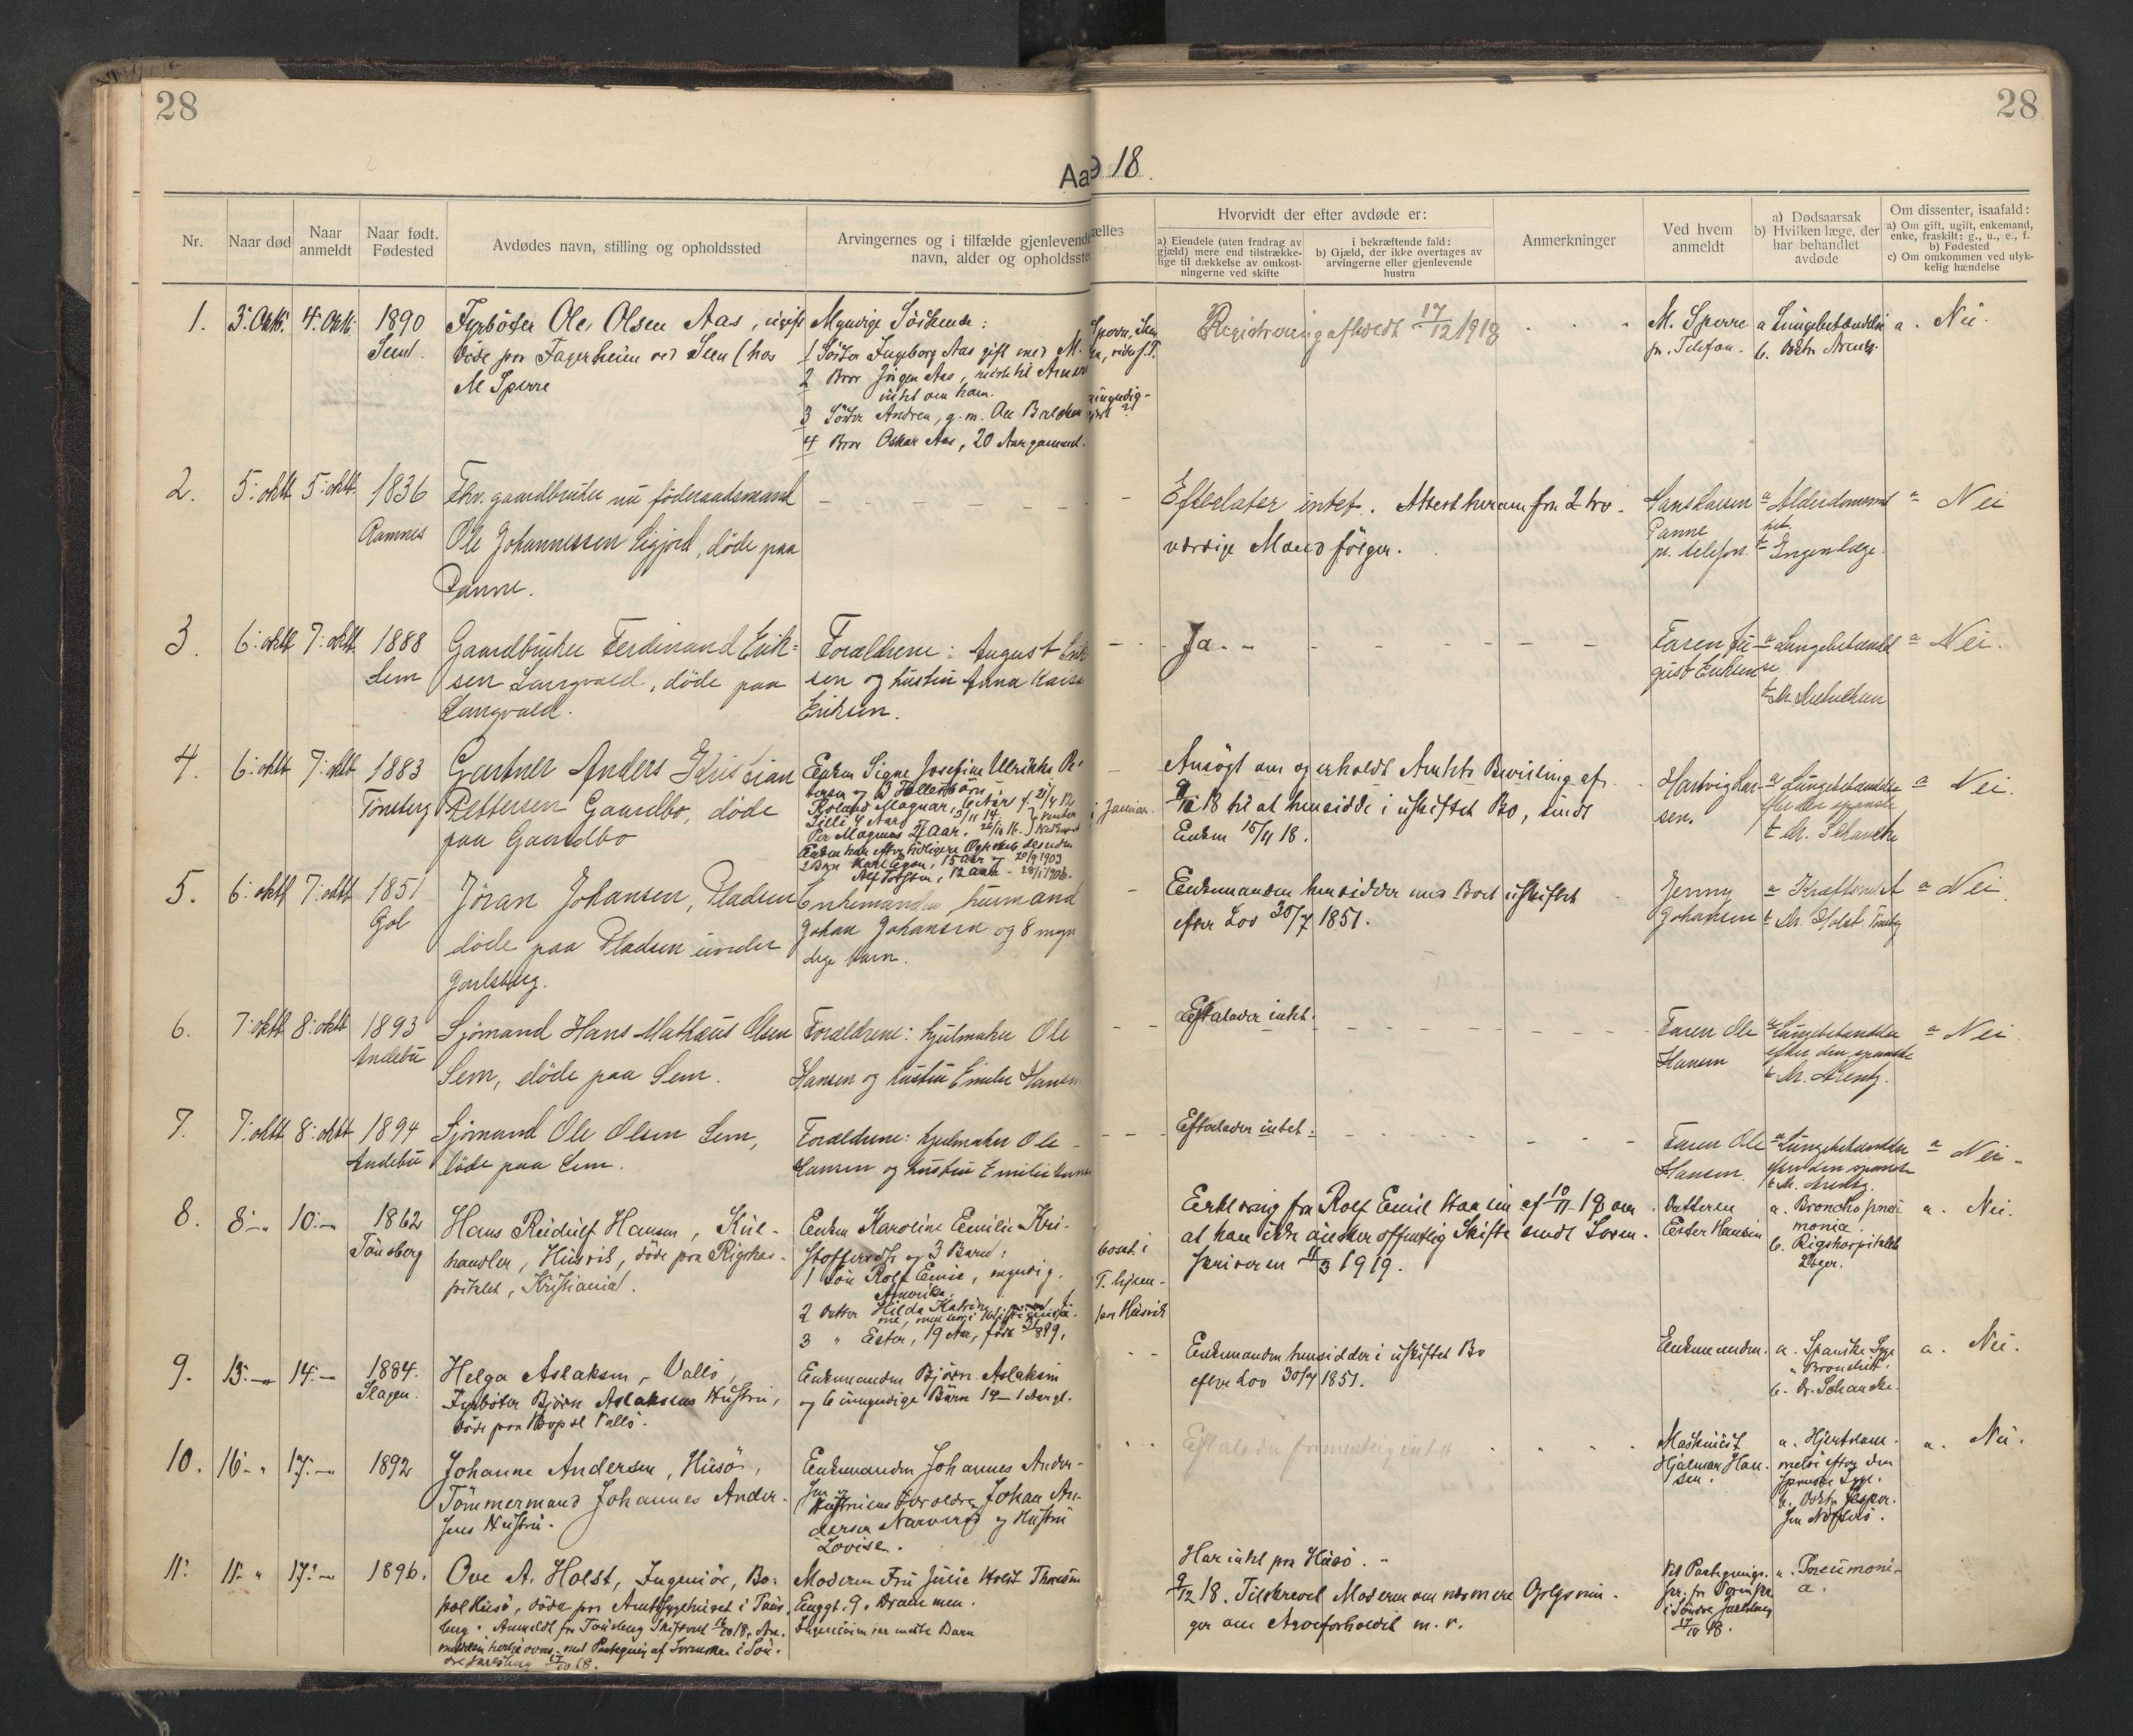 28
28
Aa
18.
Nr.
Naar død
Naar anmeldt
Naar født. Fødested
Avdødes navn, stilling og opholdssted
Arvingernes og i tilfælde gjenlevende
navn, alder og opholdsste
ælles
Hvorvidt der efter avdøde er:
a) Eiendele (uten fradrag av
gjæld) mere end tilstrække-
lige til dækkelse av omkost-
ningerne ved skifte
i bekræftende fald:
b) Gjæld, der ikke overtages av
arvingerne eller gjenlevende
hustru
Anmerkninger
Ved hvem
anmeldt
a) Dødsaarsak
b) Hvilken læge, der
har behandlet
avdøde
Om dissenter, isaafald:
a) Om gift, ugift, enkemand,
enke, fraskilt: g., u., e., f.
b) Fødested
c) Om omkommen ved ulyk-
kelig hændelse
1. 3. Okt. 4. Okt. 1890
Sem.
Fyrbøter Ole Olsen Aas, ugift
døde paa Fagerheim ved Sem (hos
M Sperre
Myndige Söskende:
1 Söster Ingeborg Aas gift med M.
2 Bror Jörgen Aas, reiste til
intet om ham.
3 Söster Andrea, g. m.
4 Bror Oskar Aas, 20 Aar gammel.
Registrering afholdt 17/12 1918
M. Sperre
pr. Telefon.
a Lungebetændelse
b. Doktor Arentz.
a. Nei
2. 5. oktb 5. oktb. 1836
Ramnes
Fhv. gaardbruker nu føderaadsmand
Ole Johannessen Gigjord, døde paa
Panne.
Efterlater intet. Attest herom fra 2 tro-
værdige Mænd følger.
Hans Larsen
Panne
pr. telefon.
a Alderdomssvak
het
b Ingen læge.
a Nei
3. 6. oktb 7. oktb. 1888
Sem
Gaardbruker Ferdinand Erik-
sen Langvald, døde paa
Langvald.
Forældrene: August Erik
sen og hustru Anna Karen
Eriksen.
Ja.
Faren Au-
gust Eriksen
a Lungebetændel
se
a Nei.
4. 6. oktb 7. oktb 1883
Tönsberg
Gartner Anders Kristian
Pettersen Gaardbo, døde
paa Gaardbo
Enken Signe Josefine Ullrikke Pe-
tersen og 3 Fællesbarn
Roland Magnar, 6 Aar f. 21/4 12
Lilli 4 Aar, 5/11 14
Per Magnus 2 Aar. 26/10 16.
Enken har efter tidligere Ægteskab desuden
2 Børn Karl Egon, 15 Aar 20/9 1903
12 Aar - 28/1 1906.
i Januar.
Ansögt om og erholdt Amtets Bevilling af
18 til at hensidde i uskiftet Bo, sendt
Enken 15/11 18.
Hartvig Lar-
sen.
a Lungebetændelse
efter den spanske
b dr. Schancke
a Nei.
5. 6. oktb 7. oktb 1851
Gol
Jöran Johansen, Pladsen
døde paa Pladsen under
Jarlsberg.
Enkemanden, husmand
Johan Johansen og 8 myn
dige barn.
Enkemanden hensidder med Boet uskiftet
efter Lov 30/7 1851.
Jenny
Johansen
a Kræftsvulst
b dr. Holst. Tönsberg
a Nei
6. 7. oktb. 8. oktb 1893
Andebu
Sjömand Hans Mathæus Olsen
Sem, døde paa Sem.
Forældrene: hjulmaker Ole
Hansen og hustru Emilie Hansen
Efterlader intet.
Faren Ole
Hansen
a Lungebetændelse
efter den spanske
b dr. Arentz.
a Nei
7. 7. oktb 8. oktb 1894
Andebu
Sjömand Ole Olsen Sem,
døde paa Sem.
Forældrene: hjulmaker Ole
Hansen og hustru Emilie Hansen
Efterlader intet.
Faren Ole
Hansen.
a Lungebetændelse
efter den spanske
b dr. Arentz.
a Nei.
8. 8. - 10. - 1862
Tönsberg
Hans Rudulf Hansen, Kul-
handler, Husvik, døde paa Rigshos-
pitalet, Kristiania.
Enken Karoline Emilie Kri-
stoffersdtr og 3 Barn:
1 Sön Rolf Emil, myndig,
Amerika,
2 Datter Hilda Katrine
3 " Ester, 19 Aar, født 1899,
bosat i
T. hjem-
paa Husvik
Erklæring fra Rolf Emil Hansen af 10/11 18 om
at han ikke önsker offentlig Skifte sendt Soren-
skriveren 11/3 1919.
Datteren
Ester Hansen
a. Broncho pneu
monia.
b. Rigshospitalets
Læger.
a. Nei.
9. 13. - 14. - 1884.
Slagen.
Helga Aslaksen, Vallö,
Fyrböter Björn Aslaksens Hustru,
døde paa Bopæl Vallö.
Enkemanden Björn Aslaksen
og 6 umyndige Börn 14 - 1 Aar gl.
Enkemanden hensidder i uskiftet Bo
efter Lov 30/7 1851.
Enkemanden.
a. Spanske Syge
Bronchit.
b. Dr. Schancke.
a. Nei.
10. 16. - 17. - 1892
Johanne Andersen, Husö,
Tömmermand Johannes Ander-
sens Hustru.
Enkemanden Johannes Ander-
sen og
Hustruens Forældre Johan An-
dersen Narverød og Hustru
Lovise.
Efterlader formentlig intet
Maskinist
Hjalmar Han-
sen.
a. Hjertelam-
melse efter den
Spanske Syge.
b. Doktor Jesper-
sen Nötterö.
a. Nei.
11. 11. - 17. - 1896.
Ove A. Holst, Ingeniör, Bo-
pæl Husö, døde paa Amtssygehuset i Töns-
berg. Anmeldt fra Tönsberg Skifteret 16/10 18.
Moderen Fru Julie Holst Thoresen
Enggt. 9. Drammen.
Har intet paa Husö. -
9/12 18. Tilskrevet Moderen om nærmere Oplysnin-
ger om Arveforholdet m. v.
a. Pneumoni-
a.